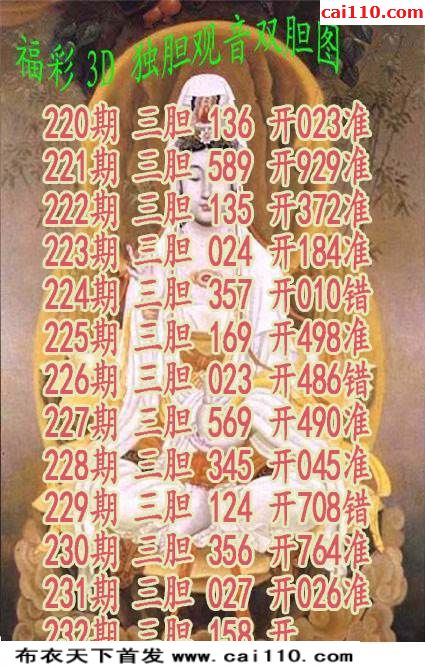 cai110.com
福彩3D 独胆观音双胆图
220期 三胆 136 开023准
221期 三胆 589 开929准
222期 三胆 135 开372准
223期 三胆 024 开184准
224期 三胆 357 开010错
225期 三胆 169 开498准
226期 三胆 023 开486错
227期 三胆 569 开490准
228期 三胆 345 开045准
229期 三胆 124 开708错
230期 三胆 356 开764准
231期 三胆 027 开026准
232期 三胆 158 开
布衣天下首发 www.cai110.com